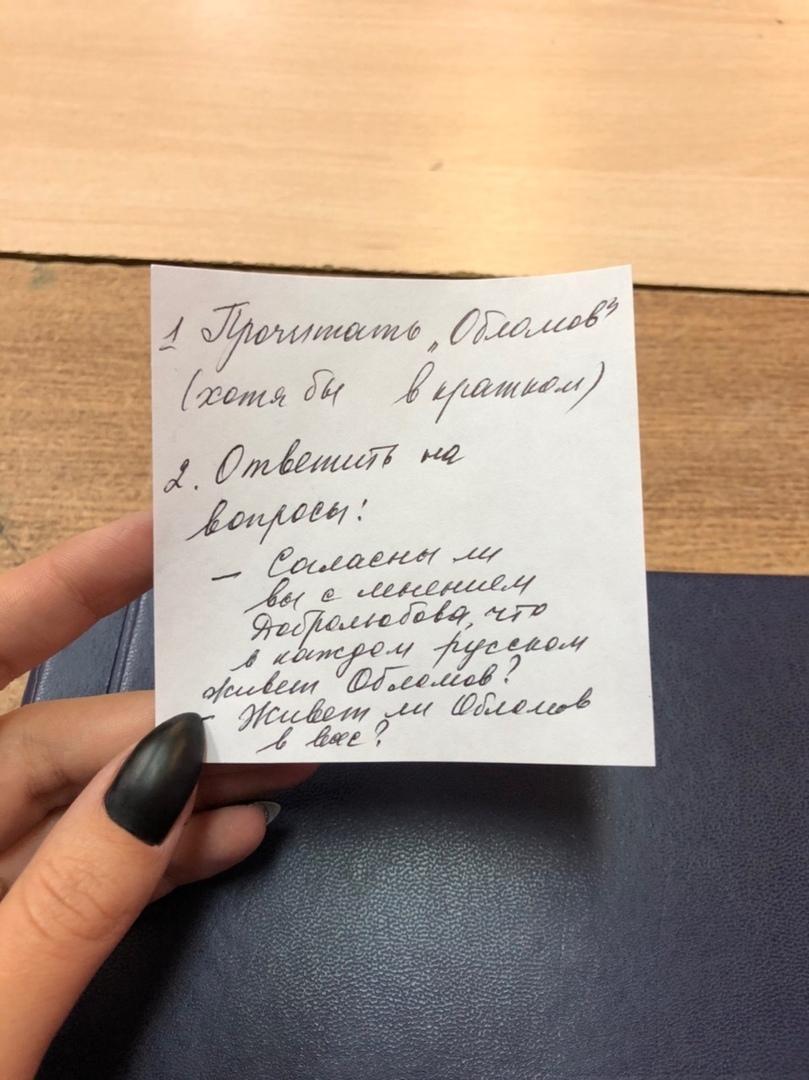 1 Прочитать „Обломов"
(хотя бы в кратком)
2. Ответить на
вопросы:
– Согласны ли
вы с мнением
Добролюбова, что
в каждом русском
живет Обломов?
– Живет ли Обломов
в вас?